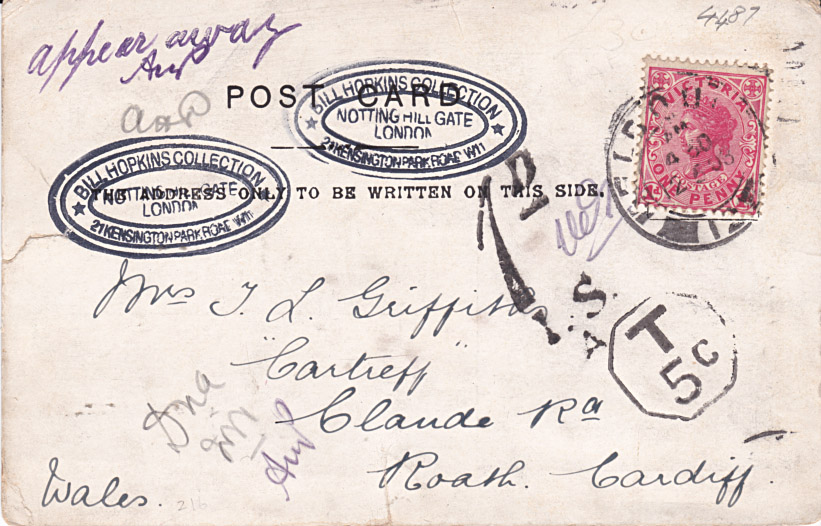 4487
appear away
POST CARD
BILL HOPKINS COLLECTION
NOTTING HILL GATE
LONDON
21 KENSINGTON PARK ROAD W11
VICTORIA
ONE PENNY
POSTAGE
BILL HOPKINS COLLECTION
NOTTING HILL GATE
LONDON
21 KENSINGTON PARK ROAD W11
THE ADDRESS ONLY TO BE WRITTEN ON THIS SIDE.
1D
Mrs T. L. Griffiths
"Cartreff"
T
5c
Claude Rd
Roath. Cardiff.
Wales.
216